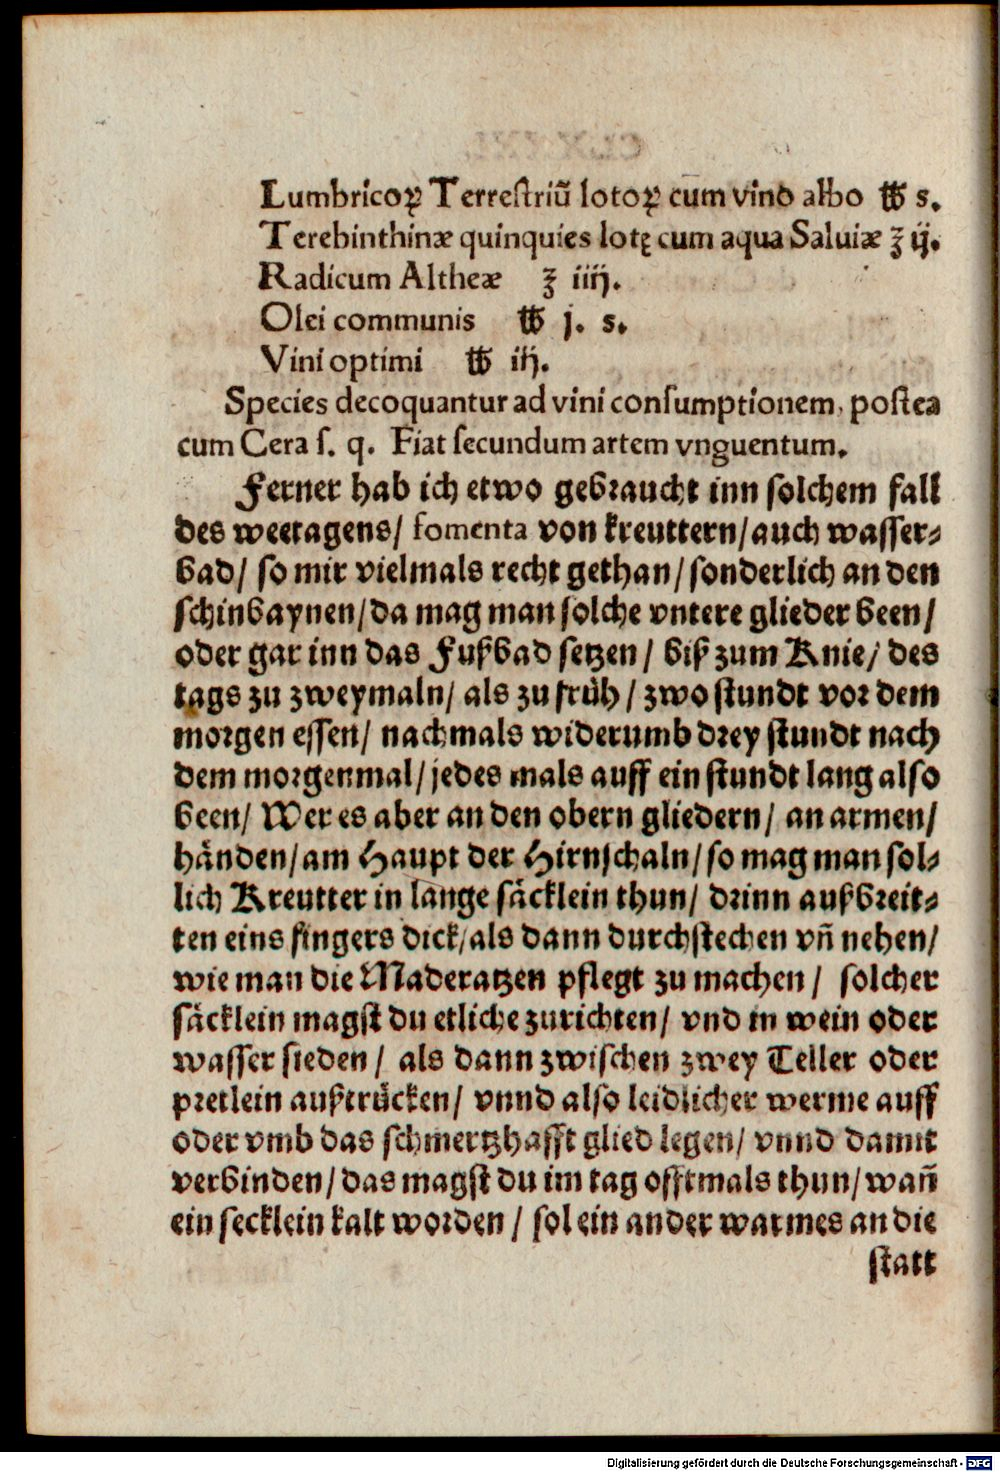 Lumbricoꝝ Terrestriũ lotoꝝ cum vino albo ℔ s.
Terebinthinæ quinquies lotę cum aqua Saluiæ ʒ ij.
Radicum Altheæ ʒ iiij.
Olei communis ℔ j. s.
Vini optimi ℔ iij.
Species decoquantur ad vini consumptionem, postea
cum Cera s. q. Fiat secundum artem vnguentum.
Ferner hab ich etwo gebraucht inn solchem fall
des weetagens/ fomenta von kreuttern/ auch wasser-
bad/ so mir vielmals recht gethan/ sonderlich an den
schinbaynen/ da mag man solche vntere glieder been/
oder gar inn das Fußbad setzen/ biß zum Knie/ des
tags zu zweymaln/ als zu früh/ zwo stundt vor dem
morgen essen/ nachmals widerumb drey stundt nach
dem morgenmal/ jedes mals auff ein stundt lang also
been/ Wer es aber an den obern gliedern/ an armen/
händen/ am Haupt der Hirnschaln/ so mag man sol-
lich Kreutter in lange säcklein thun/ drinn außbreit-
ten eins fingers dick/ als dann durchstechen vñ nehen/
wie man die Maderatzen pflegt zu machen/ solcher
säcklein magst du etliche zurichten/ vnd in wein oder
wasser sieden/ als dann zwischen zwey Teller oder
pretlein außtrücken/ vnnd also leidlicher werme auff
oder vmb das schmertzhafft glied legen/ vnnd damit
verbinden/ das magst du im tag offtmals thun/ wañ
ein secklein kalt worden/ sol ein ander warmes an die
statt
Digitalisierung gefördert durch die Deutsche Forschungsgemeinschaft - DFG